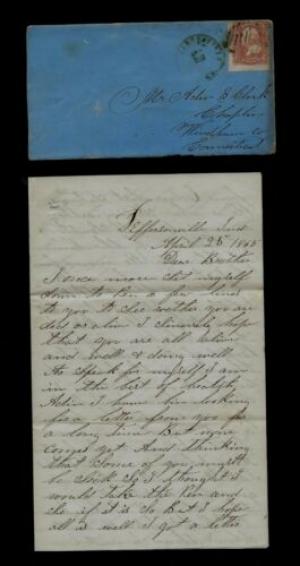 Mr Acliv B Clark
Chaplin
Windham co
Connecticut
Jeffersonville Ind
April 25 1865
Dear Brother
I once more set myself
down to Pen a few lines
to you to see wether you are
ded or alive I Sincerely hope
that you are all alive
and well & doing well
As speak for myself I am
in the best of health
I have ben looking
for a letter from you for
a long time But none
comes yet And thinking
that some of you might
be Sick So I thought I
would take the Pen and
see if it is So But I hope
all is well I got a letter